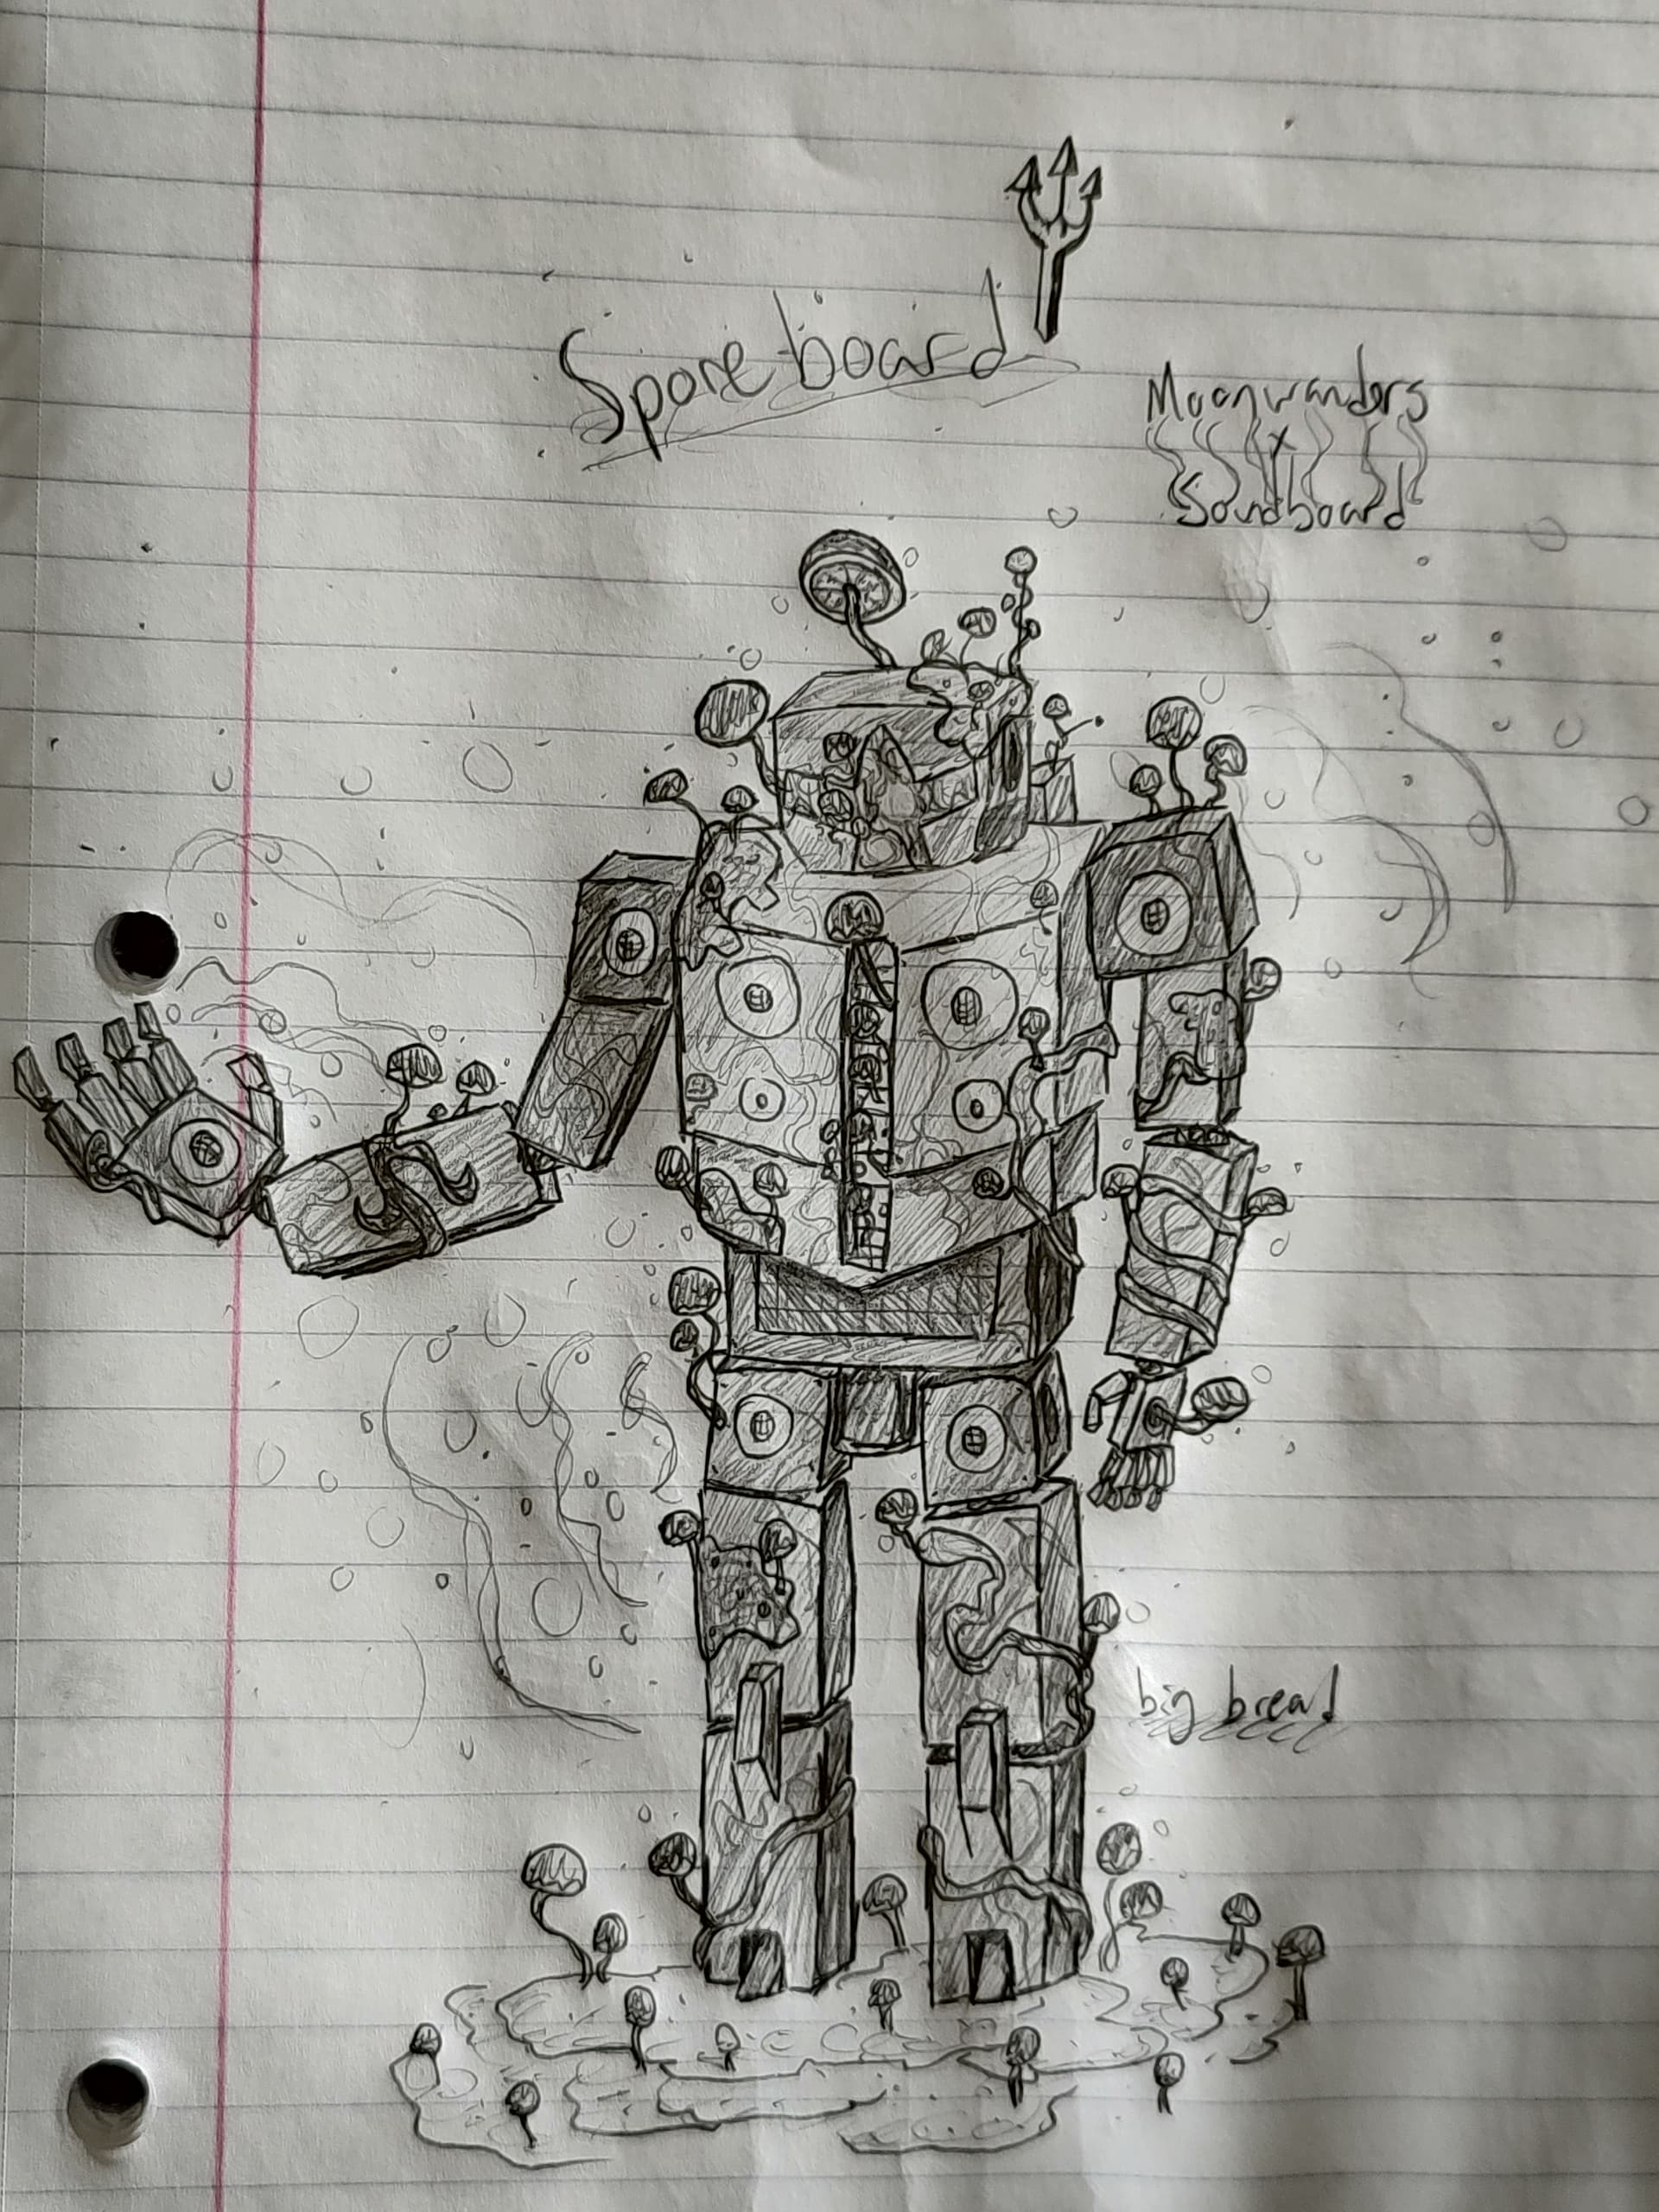 Spore-board
Moonwanders
x
Soundboard
big bread